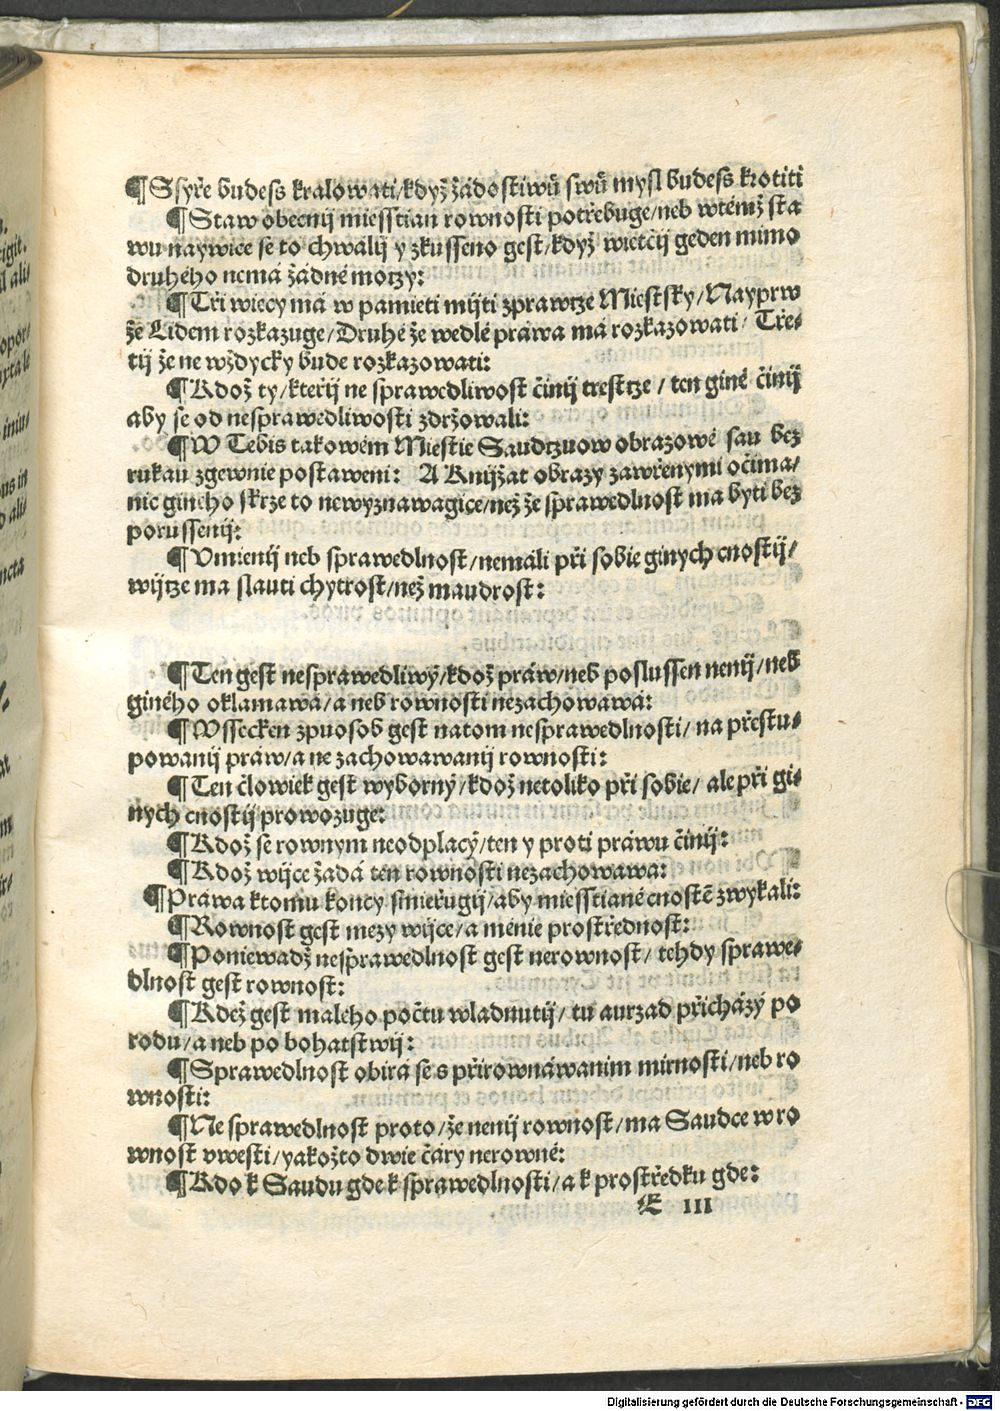 ¶Ssyře budess kralowati/když žádostiwů swů mysl budess krotiti
¶Staw obecnij miesstian rownosti potřebuge/neb wtémž sta
wu naywice se to chwálij y zkusseno gest/když wietčij geden mimo
druhého nemá žádné motzy:
¶Tři wiecy má w pamieti mijti zprawtze Miestsky/Nayprw
že Lidem rozkazuge/Druhé že wedlé práwa má rozkazowati/Tře⸗
tij že ne wždycky bude rozkazowati:
¶Kdož ty/kteřij ne sprawedliwost činij trestrze/ten giné činij
aby se od nesprawedliwosti zdržowali:
¶W Tebis takowém Miestie Saudtzuow obrazowé sau bez
rukau zgewnie postaweni: A Knijžat obrazy zawřenymi očima/
nic giného skrze to newyznawagice/než že sprawedlnost ma byti bez
porussenij:
¶Vmienij neb sprawedlnost/nemáli při sobie ginych cnostij/
wijtze ma slauti chytrost/než maudrost:
¶Ten gest nesprawedliwý/kdož práw/neb poslussen nenij/neb
giného oklamawá/a neb rownosti nezachowawá:
¶Wssecken zpuosob gest natom nesprawedlnosti/na přestu⸗
powanij práw/a ne zachowawanij rownosti:
¶Ten člowiek gest wyborný/kdož netoliko při sobie/ale při gi⸗
nych cnostij prowozuge:
¶Kdož se rownym neodplacý/ten y proti práwu činij:
¶Kdož wijce žadá ten rownosti nezachowawa:
¶Práwa ktomu koncy smieřugij/aby miesstiané cnostē zwykali:
¶Rownost gest mezy wijce/a ménie prostřednost:
¶Poniewadž nesprawedlnost gest nerownost/tehdy sprawe⸗
dlnost gest rownost:
¶Kdež gest maleho počtu wladnutij/tu aurzad přicházý po
rodu/a neb po bohatstwij:
¶Sprawedlnost obirá se s přirownáwanim mirnosti/neb ro
wnosti:
¶Ne sprawedlnost proto/že nenij rownost/ma Saudce w ro
wnost vwesti/yakožto dwie čáry nerowné:
¶Kdo k Saudu gde k sprawedlnosti/a k prostředku gde:
E III
Digitalisierung gefördert durch die Deutsche Forschungsgemeinschaft - DFG